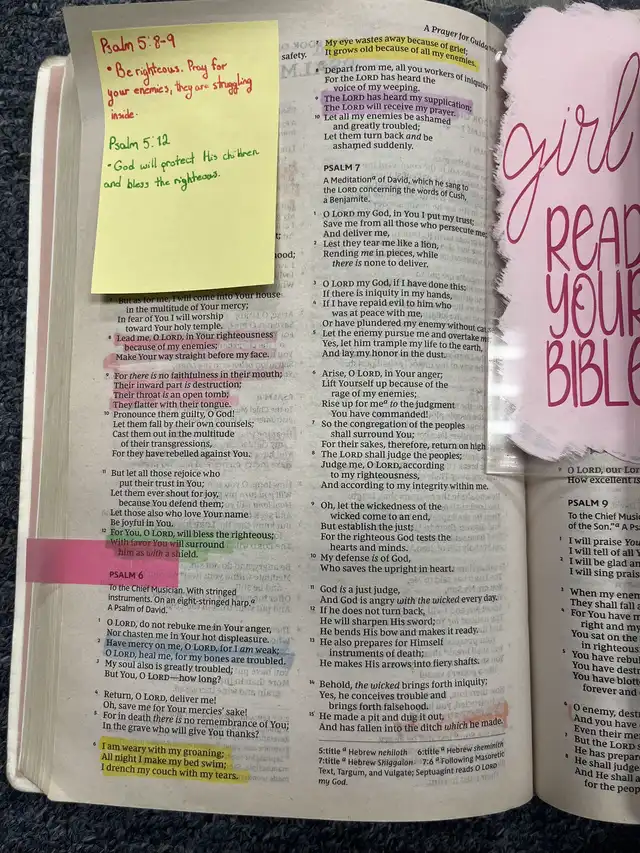 Psalm 5:8-9
• Be righteous. Pray for
your enemies, they are struggling
inside.
Psalm 5:12
• God will protect His children
and bless the righteous.
safety.
7 But as for me, I will come into Your house
in the multitude of Your mercy;
In fear of You I will worship
toward Your holy temple.
8 Lead me, O LORD, in Your righteousness
because of my enemies;
Make Your way straight before my face.
9 For there is no faithfulness in their mouth;
Their inward part is destruction;
Their throat is an open tomb;
They flatter with their tongue.
10 Pronounce them guilty, O God!
Let them fall by their own counsels;
Cast them out in the multitude
of their transgressions,
For they have rebelled against You.
11 But let all those rejoice who
put their trust in You;
Let them ever shout for joy,
because You defend them;
Let those also who love Your name
Be joyful in You.
12 For You, O LORD, will bless the righteous;
With favor You will surround
him as with a shield.
PSALM 6
To the Chief Musician. With stringed
instruments. On an eight-stringed harp.a
A Psalm of David.
1 O LORD, do not rebuke me in Your anger,
Nor chasten me in Your hot displeasure.
2 Have mercy on me, O LORD, for I am weak;
O LORD, heal me, for my bones are troubled.
3 My soul also is greatly troubled;
But You, O LORD—how long?
4 Return, O LORD, deliver me!
Oh, save me for Your mercies' sake!
5 For in death there is no remembrance of You;
In the grave who will give You thanks?
6 I am weary with my groaning;
All night I make my bed swim;
I drench my couch with my tears.
A Prayer for Guidance
7 My eye wastes away because of grief;
It grows old because of all my enemies.
8 Depart from me, all you workers of iniquity
For the LORD has heard the
voice of my weeping.
9 The LORD has heard my supplication;
The LORD will receive my prayer.
10 Let all my enemies be ashamed
and greatly troubled;
Let them turn back and be
ashamed suddenly.
PSALM 7
A Meditationa of David, which he sang to
the LORD concerning the words of Cush,
a Benjamite.
1 O LORD my God, in You I put my trust;
Save me from all those who persecute me;
And deliver me,
2 Lest they tear me like a lion,
Rending me in pieces, while
there is none to deliver.
3 O LORD my God, if I have done this;
If there is iniquity in my hands,
4 If I have repaid evil to him who
was at peace with me,
Or have plundered my enemy without
5 Let the enemy pursue me and overtake me
Yes, let him trample my life to the earth,
And lay my honor in the dust.
6 Arise, O LORD, in Your anger;
Lift Yourself up because of the
rage of my enemies;
Rise up for mea to the judgment
You have commanded!
7 So the congregation of the peoples
shall surround You;
For their sakes, therefore, return on high
8 The LORD shall judge the peoples;
Judge me, O LORD, according
to my righteousness,
And according to my integrity within me.
9 Oh, let the wickedness of the
wicked come to an end,
But establish the just;
For the righteous God tests the
hearts and minds.
10 My defense is of God,
Who saves the upright in heart.
11 God is a just judge,
And God is angry with the wicked every day.
12 If he does not turn back,
He will sharpen His sword;
He bends His bow and makes it ready.
13 He also prepares for Himself
instruments of death;
He makes His arrows into fiery shafts.
14 Behold, the wicked brings forth iniquity;
Yes, he conceives trouble and
brings forth falsehood.
15 He made a pit and dug it out,
And has fallen into the ditch which he made.
5:title a Hebrew nehiloth 6:title a Hebrew sheminith
7:title a Hebrew Shiggaion 7:6 a Following Masoretic
Text, Targum, and Vulgate; Septuagint reads O LORD
my God.
girl
READ
YOUR
BIBLE
9 O LORD, our Lor
How excellent is
PSALM 9
To the Chief Music
of the Son."a A Ps
1 I will praise You
I will tell of all Y
2 I will be glad an
I will sing praise
3 When my enem
They shall fall
4 For You have m
right and my
You sat on the
in righteous
5 You have rebu
You have dest
You have blott
forever and
6 O enemy, dest
And you have
Even their me
7 But the LORD
He has prepar
8 He shall judge
And He shall a
for the peop